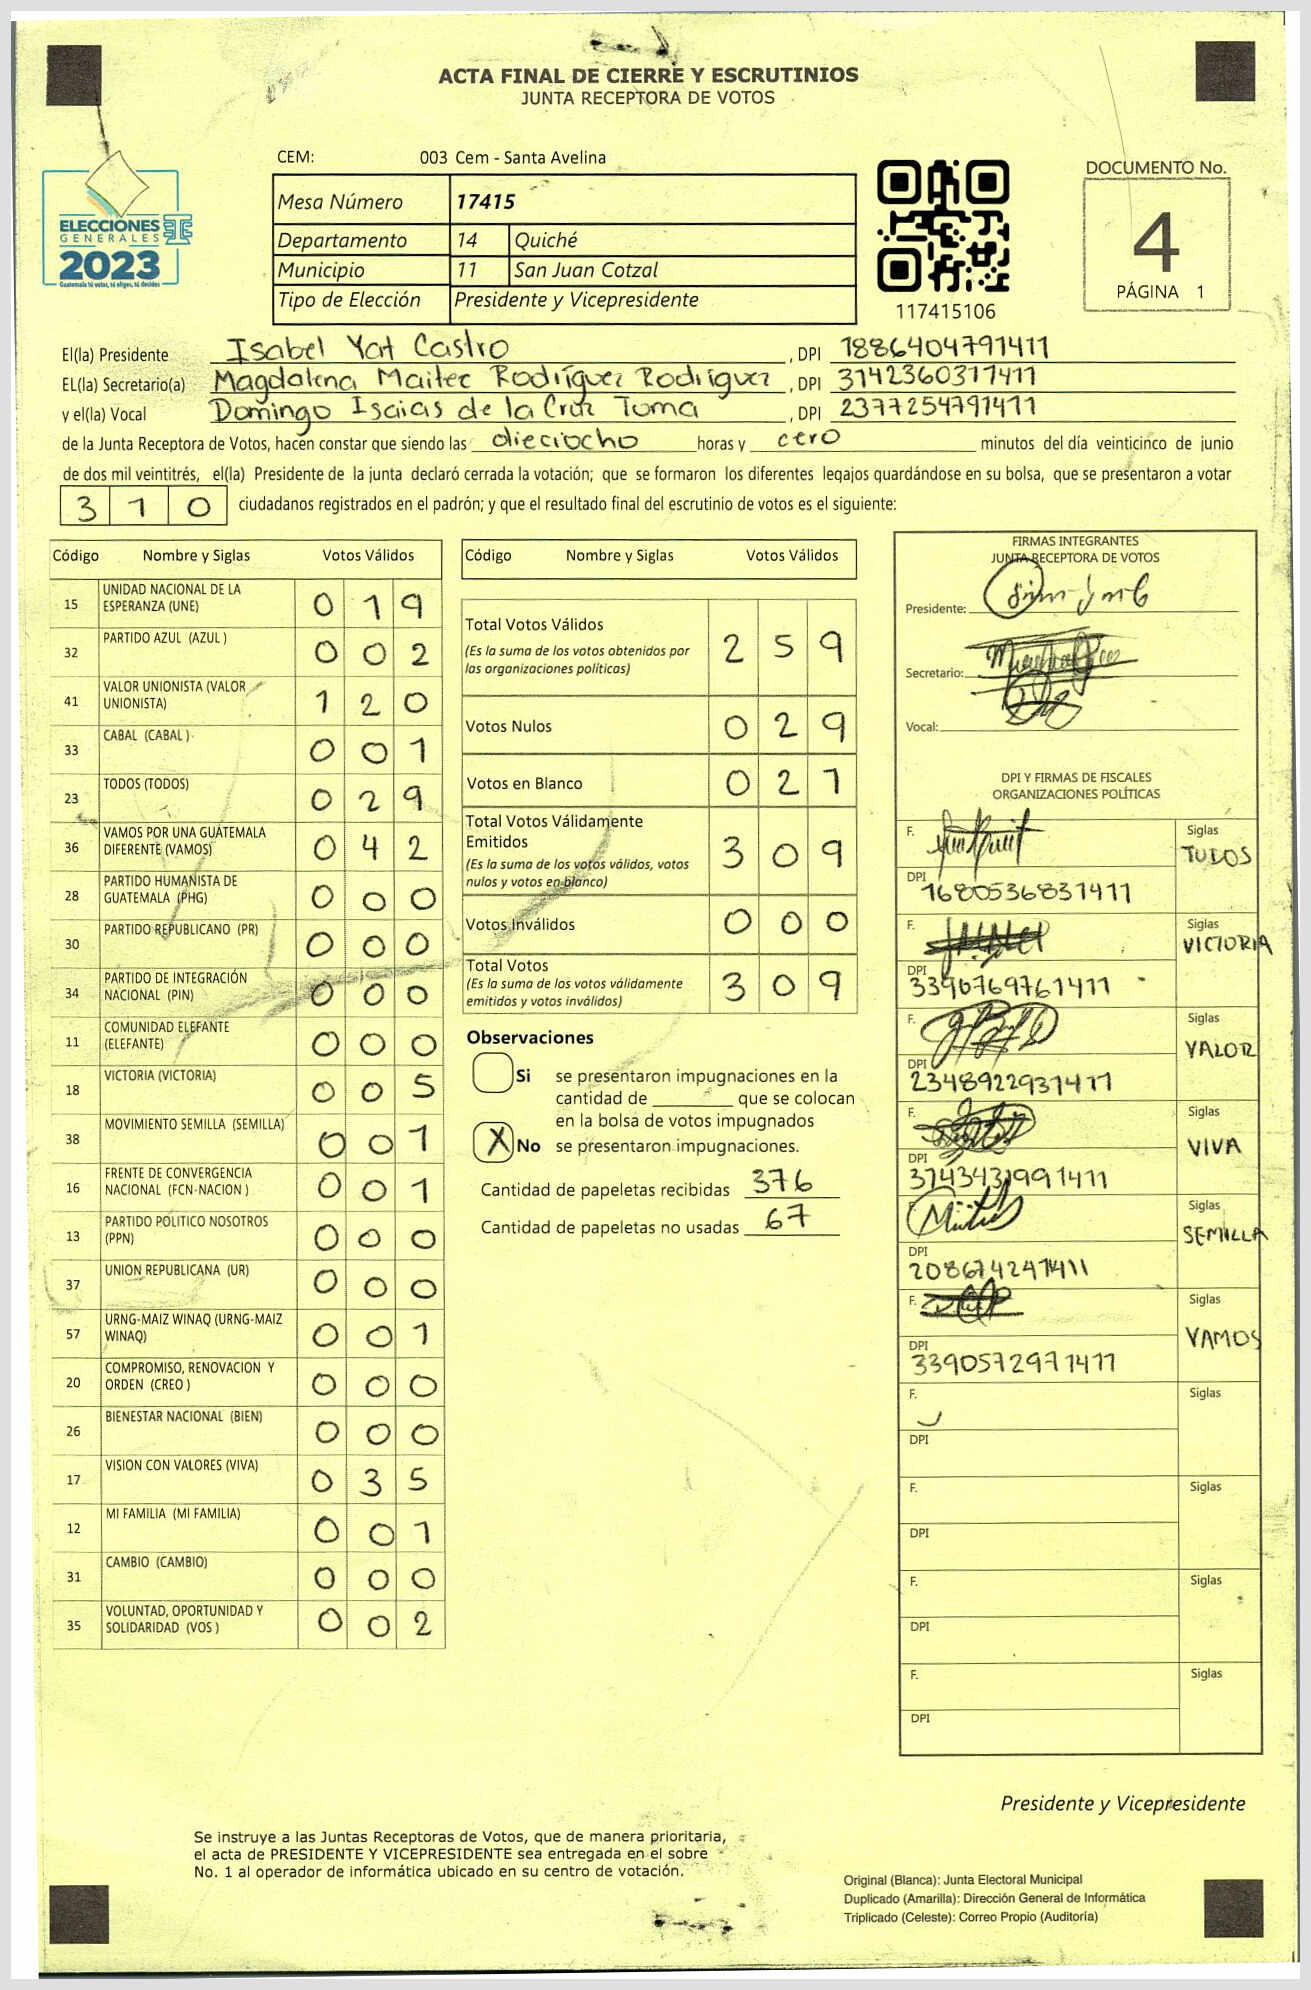 ACTA FINAL DE CIERRE Y ESCRUTINIOS
JUNTA RECEPTORA DE VOTOS
ELECCIONES
GENERALES
2023
Guatemala tú votas, tú eliges, tú decides
CEM: 003 Cem - Santa Avelina
Mesa Número 17415
Departamento 14 Quiché
Municipio 11 San Juan Cotzal
Tipo de Elección Presidente y Vicepresidente
117415106
DOCUMENTO No.
4
PÁGINA 1
El(la) Presidente Isabel Yat Castro , DPI 1886404791411
EL(la) Secretario(a) Magdalena Maitec Rodríguez Rodríguez , DPI 3142360317411
y el(la) Vocal Domingo Isaias de la Cruz Toma , DPI 2377254791411
de la Junta Receptora de Votos, hacen constar que siendo las dieciocho horas y cero minutos del día veinticinco de junio
de dos mil veintitrés, el(la) Presidente de la junta declaró cerrada la votación; que se formaron los diferentes legajos guardándose en su bolsa, que se presentaron a votar
310 ciudadanos registrados en el padrón; y que el resultado final del escrutinio de votos es el siguiente:
Código Nombre y Siglas Votos Válidos
15 UNIDAD NACIONAL DE LA ESPERANZA (UNE) 019
32 PARTIDO AZUL (AZUL ) 002
41 VALOR UNIONISTA (VALOR UNIONISTA) 120
33 CABAL (CABAL ) 001
23 TODOS (TODOS) 029
36 VAMOS POR UNA GUATEMALA DIFERENTE (VAMOS) 042
28 PARTIDO HUMANISTA DE GUATEMALA (PHG) 000
30 PARTIDO REPUBLICANO (PR) 000
34 PARTIDO DE INTEGRACIÓN NACIONAL (PIN) 000
11 COMUNIDAD ELEFANTE (ELEFANTE) 000
18 VICTORIA (VICTORIA) 005
38 MOVIMIENTO SEMILLA (SEMILLA) 001
16 FRENTE DE CONVERGENCIA NACIONAL (FCN-NACION ) 001
13 PARTIDO POLITICO NOSOTROS (PPN) 000
37 UNION REPUBLICANA (UR) 000
57 URNG-MAIZ WINAQ (URNG-MAIZ WINAQ) 001
20 COMPROMISO, RENOVACION Y ORDEN (CREO ) 000
26 BIENESTAR NACIONAL (BIEN) 000
17 VISION CON VALORES (VIVA) 035
12 MI FAMILIA (MI FAMILIA) 001
31 CAMBIO (CAMBIO) 000
35 VOLUNTAD, OPORTUNIDAD Y SOLIDARIDAD (VOS ) 002
Código Nombre y Siglas Votos Válidos
Total Votos Válidos 259
(Es la suma de los votos obtenidos por
las organizaciones políticas)
Votos Nulos 029
Votos en Blanco 021
Total Votos Válidamente
Emitidos 309
(Es la suma de los votos válidos, votos
nulos y votos en blanco)
Votos Inválidos 000
Total Votos 309
(Es la suma de los votos válidamente
emitidos y votos inválidos)
Observaciones
Si se presentaron impugnaciones en la
cantidad de ________ que se colocan
en la bolsa de votos impugnados
X No se presentaron impugnaciones.
Cantidad de papeletas recibidas 376
Cantidad de papeletas no usadas 67
FIRMAS INTEGRANTES
JUNTA RECEPTORA DE VOTOS
Presidente:
Secretario:
Vocal:
DPI Y FIRMAS DE FISCALES
ORGANIZACIONES POLÍTICAS
F. Siglas
TODOS
DPI 1680536831411
F. Siglas
VICTORIA
DPI 3390769761411
F. Siglas
VALOR
DPI 2348922931411
F. Siglas
VIVA
DPI 3743431991411
F. Siglas
SEMILLA
DPI
F. Siglas
VAMOS
DPI 3390572971411
F. Siglas
DPI
F. Siglas
DPI
F. Siglas
DPI
F. Siglas
DPI
Presidente y Vicepresidente
Se instruye a las Juntas Receptoras de Votos, que de manera prioritaria,
el acta de PRESIDENTE Y VICEPRESIDENTE sea entregada en el sobre
No. 1 al operador de informática ubicado en su centro de votación.
Original (Blanca): Junta Electoral Municipal
Duplicado (Amarilla): Dirección General de Informática
Triplicado (Celeste): Correo Propio (Auditoría)